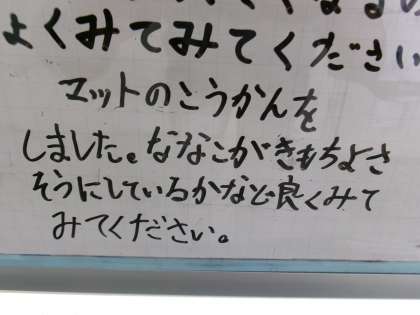 よくみてみてください
マットのこうかんを
しました。ななこがきもちよさ
そうにしているかなど良くみて
みてください。